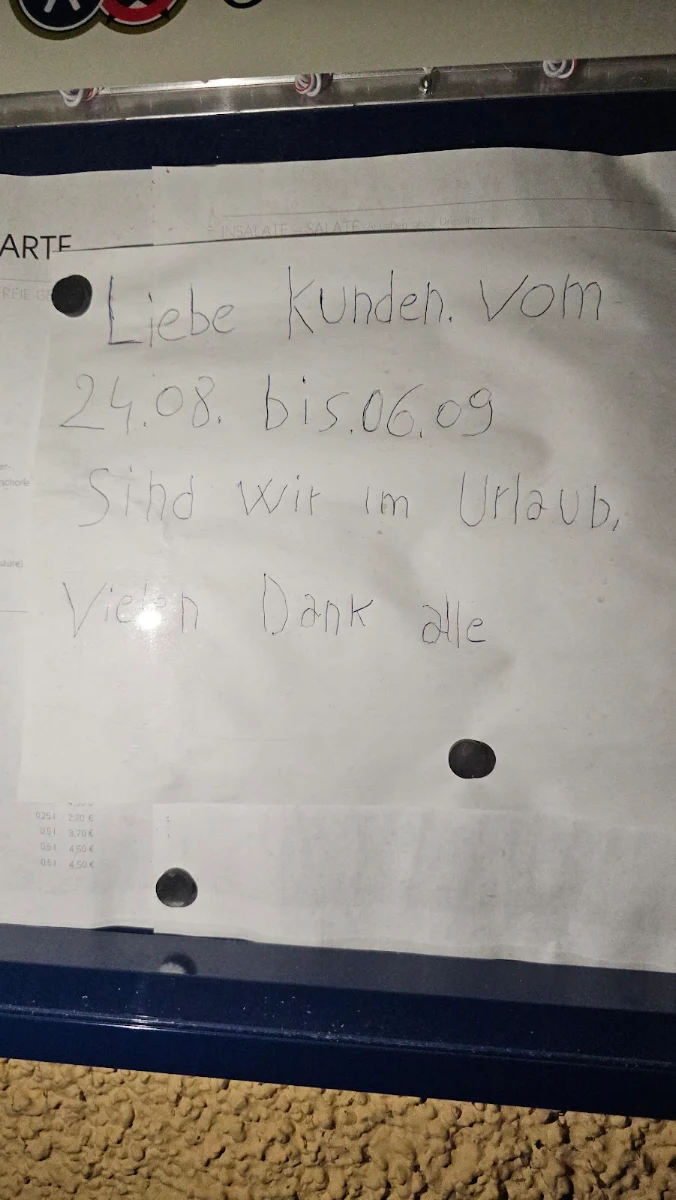 ARTE
INSALATE - SALATE
Liebe Kunden. Vom
24.08. bis.06.09
Sind wir im Urlaub,
Vielen Dank alle
0,25 l 2,20 €
0,5 l 3,70 €
0,5 l 4,50 €
0,5 l 4,50 €